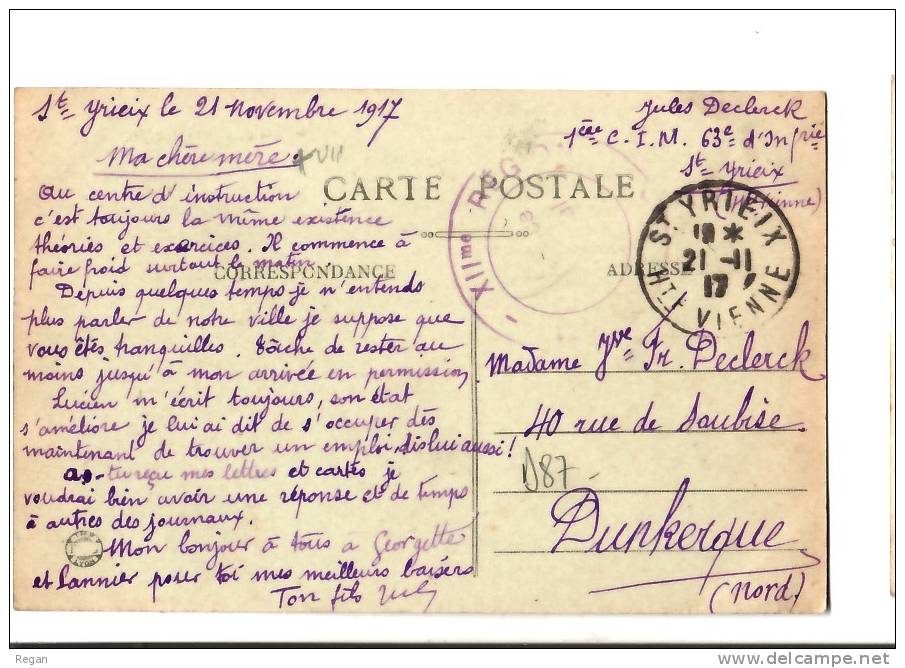 St Yrieix le 21 novembre 1917
Ma chère mère.
XVII
au centre d'instruction
c'est toujours la même existence
théories et exercices. Il commence à
faire froid surtout le matin
Depuis quelques temps je n'entends
plus parler de notre ville je suppose que
vous êtes tranquilles. tâche de rester au
moins jusqu'à mon arrivée en permission
Lucien m'écrit toujours, son état
s'améliore je lui ai dit de s'occuper dès
maintenant de trouver un emploi, dis lui aussi !
as-tu reçu mes lettres et cartes je
voudrai bien avoir une réponse et de temps
à autres des journaux.
Mon bonjour à tous a Georgette
et Lannier pour toi mes meilleurs baisers
Ton fils
CARTE POSTALE
CORRESPONDANCE
ADRESSE
Jules Declerck
1ère C.I.M. 63e d'Infrie
St Yrieix
XIIme REG
ST YRIEIX
19 *
21 - 11
17
HTE VIENNE
Madame Vve Fr. Declerck
40 rue de Soubise.
D87
Dunkerque
(Nord)
Regan
www.delcampe.net